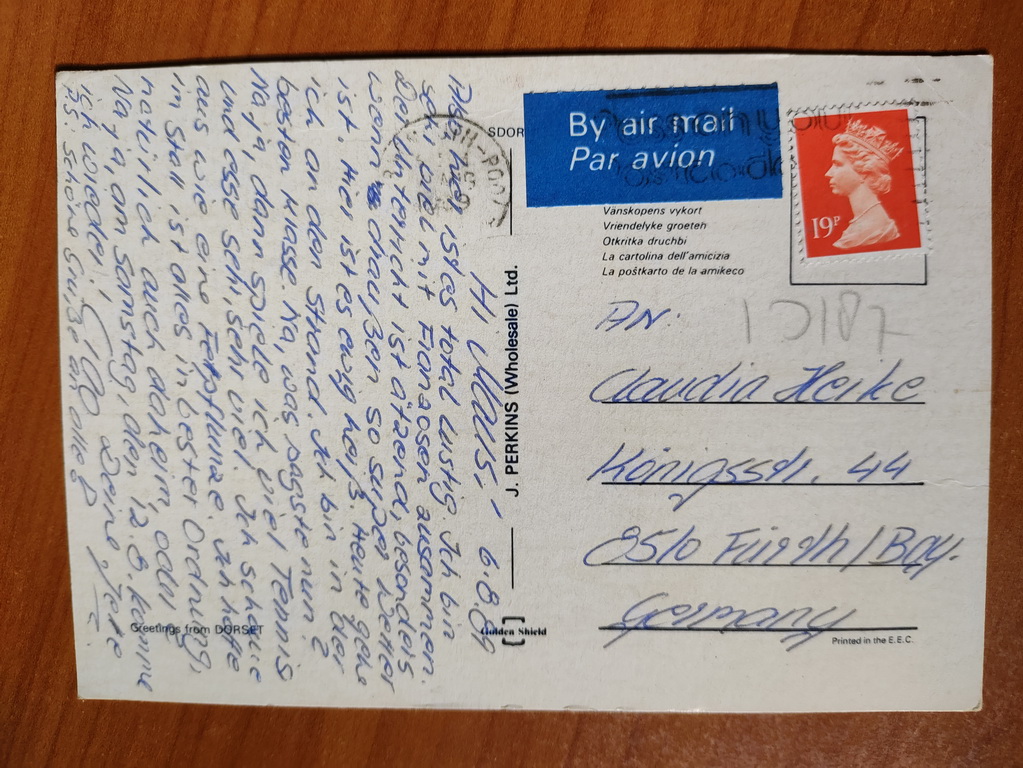 Hi Mausi! 6.8.89
Also hier ist es total lustig. Ich bin
sehr viel mit Franzosen zusammen.
Der Unterricht ist ätzend, besonders
wenn draußen so super Wetter
ist. Hier ist es ewig heiß. Heute gehe
ich an den Strand. Ich bin in der
besten Klasse. Na, was sagste nun?
Na ja, dann spiele ich viel Tennis
und esse sehr, sehr viel. Ich schaue
aus wie eine
in Stall ist alles in bester Ordnung,
natürlich auch daheim, odu
Na ja, am Samstag, den 12.8. komme
ich wieder! Deine
PS: Schöne Grüße an alle
Greetings from DORSET
J. PERKINS (Wholesale) Ltd.
Golden Shield
SDOR
By air mail
Par avion
19P
Vänskopens vykort
Vriendelyke groeten
Otkritka druchbi
La cartolina dell'amicizia
La poŝtkarto de la amikeco
AN:
Claudia Heike
Königsstr. 44
8510 Fürth/Bay.
Germany
Printed in the E.E.C.